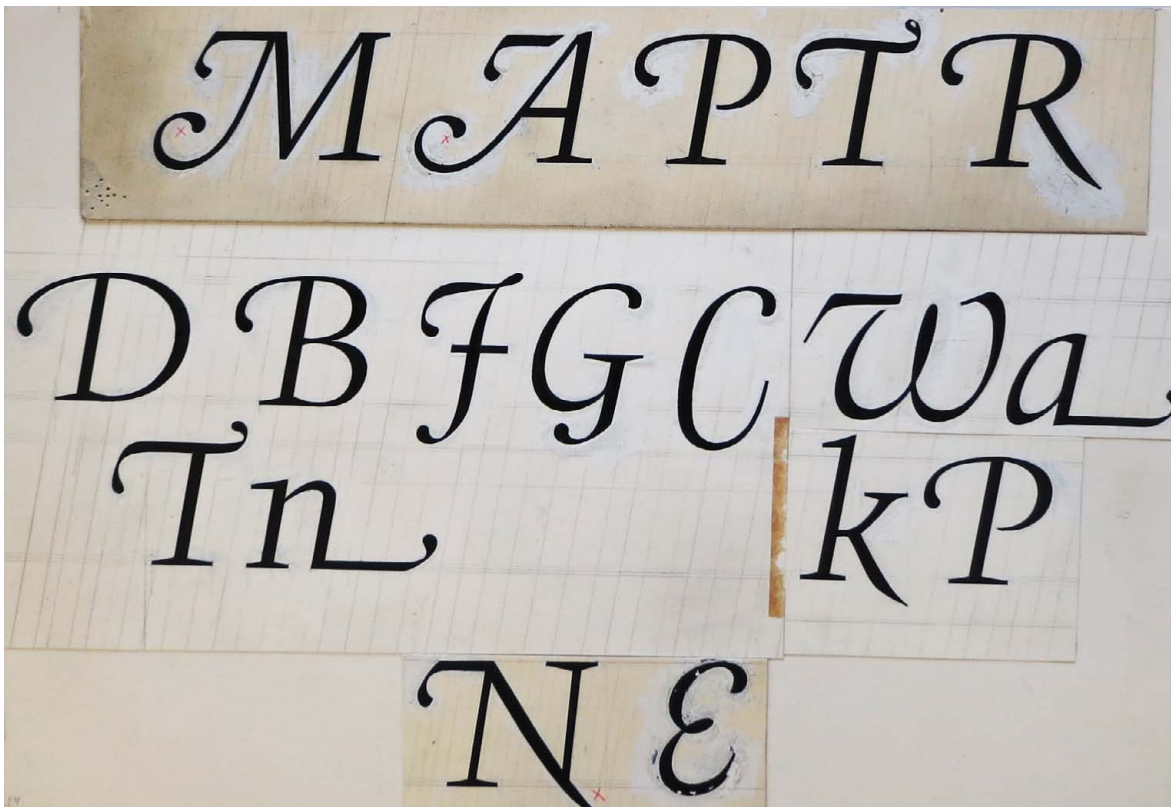 M A P T R
D B F G C W a
T n k P
N E